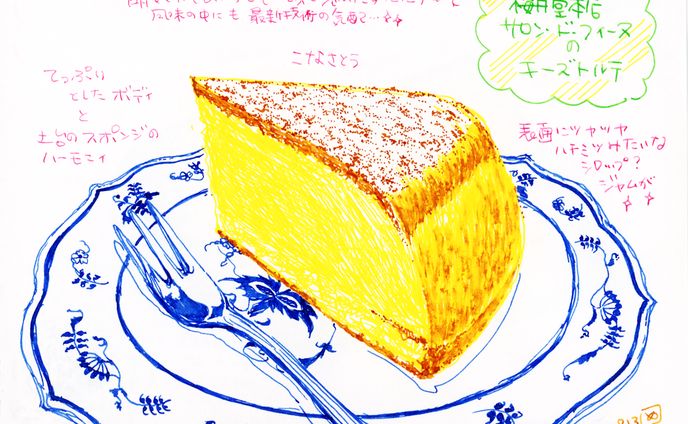 風味の中にも最新技術の気配…☆☆
梅月堂本店
サロン・ド・フィーヌ
の
チーズトルテ
こなさとう
てっぷり
としたボディ
と
土台のスポンジの
ハーモニィ
表面にツヤツヤ
ハチミツみたいな
シロップ?
ジャムが
☆☆